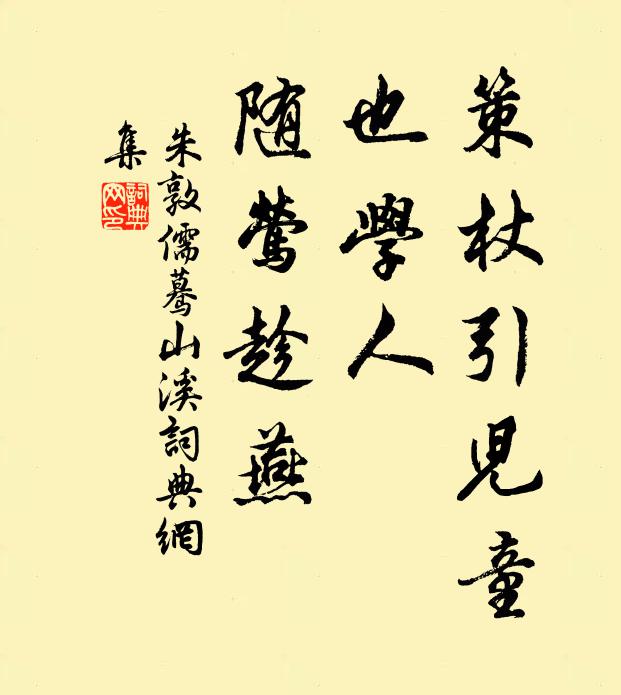 策杖引児童
也學人
随鶯趁燕
朱敦儒驀山溪詞典網
集
詞典
网印